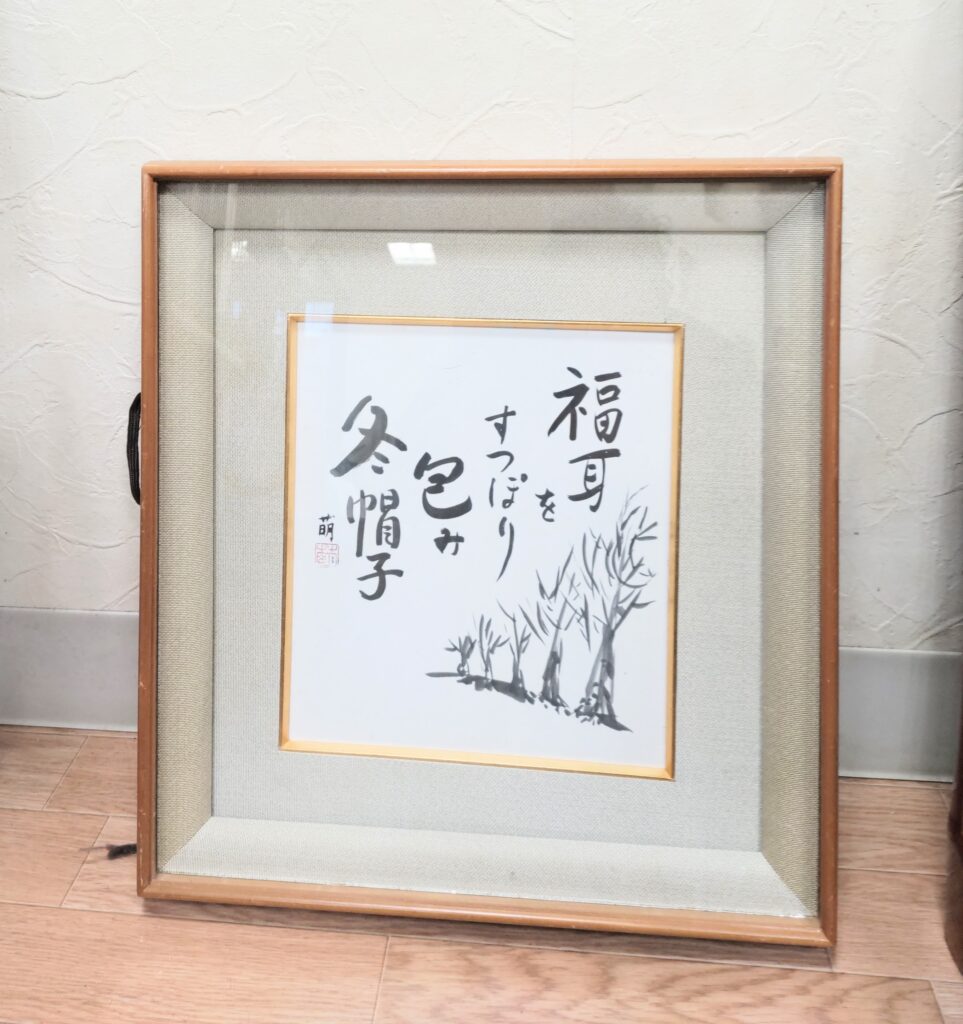 福耳を
すつぽり
包み
冬帽子
萌